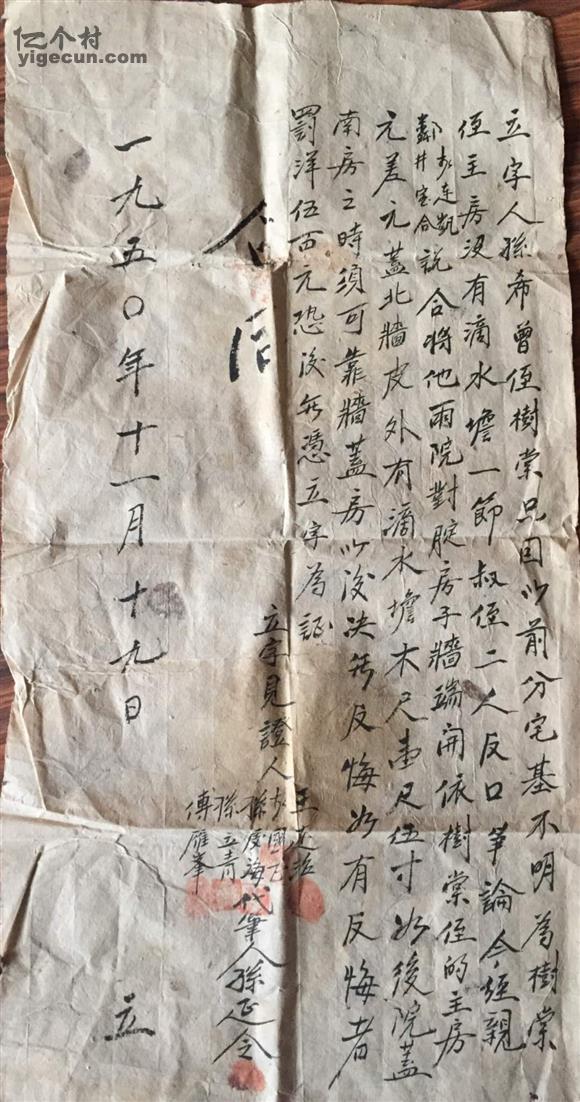 亿个村
yigecun.com
立字人孫希曾侄樹棠只因以前分宅基不明為樹棠
侄主房没有滴水擔一節叔侄二人反口争論今经親
鄰井宝合連凱説合將他兩院對腚房子牆端開依樹棠侄的主房
元差元蓋北牆皮外有滴水擔木尺壹尺伍寸如後院蓋
南房之時須可靠牆蓋房以後决無反悔如有反悔者
罰洋伍百元恐後無憑立字為証
立字見證人
孫慶海
孫立青
傅雁峯
代筆人孫延令
合同
一九五〇年十一月十九日
立